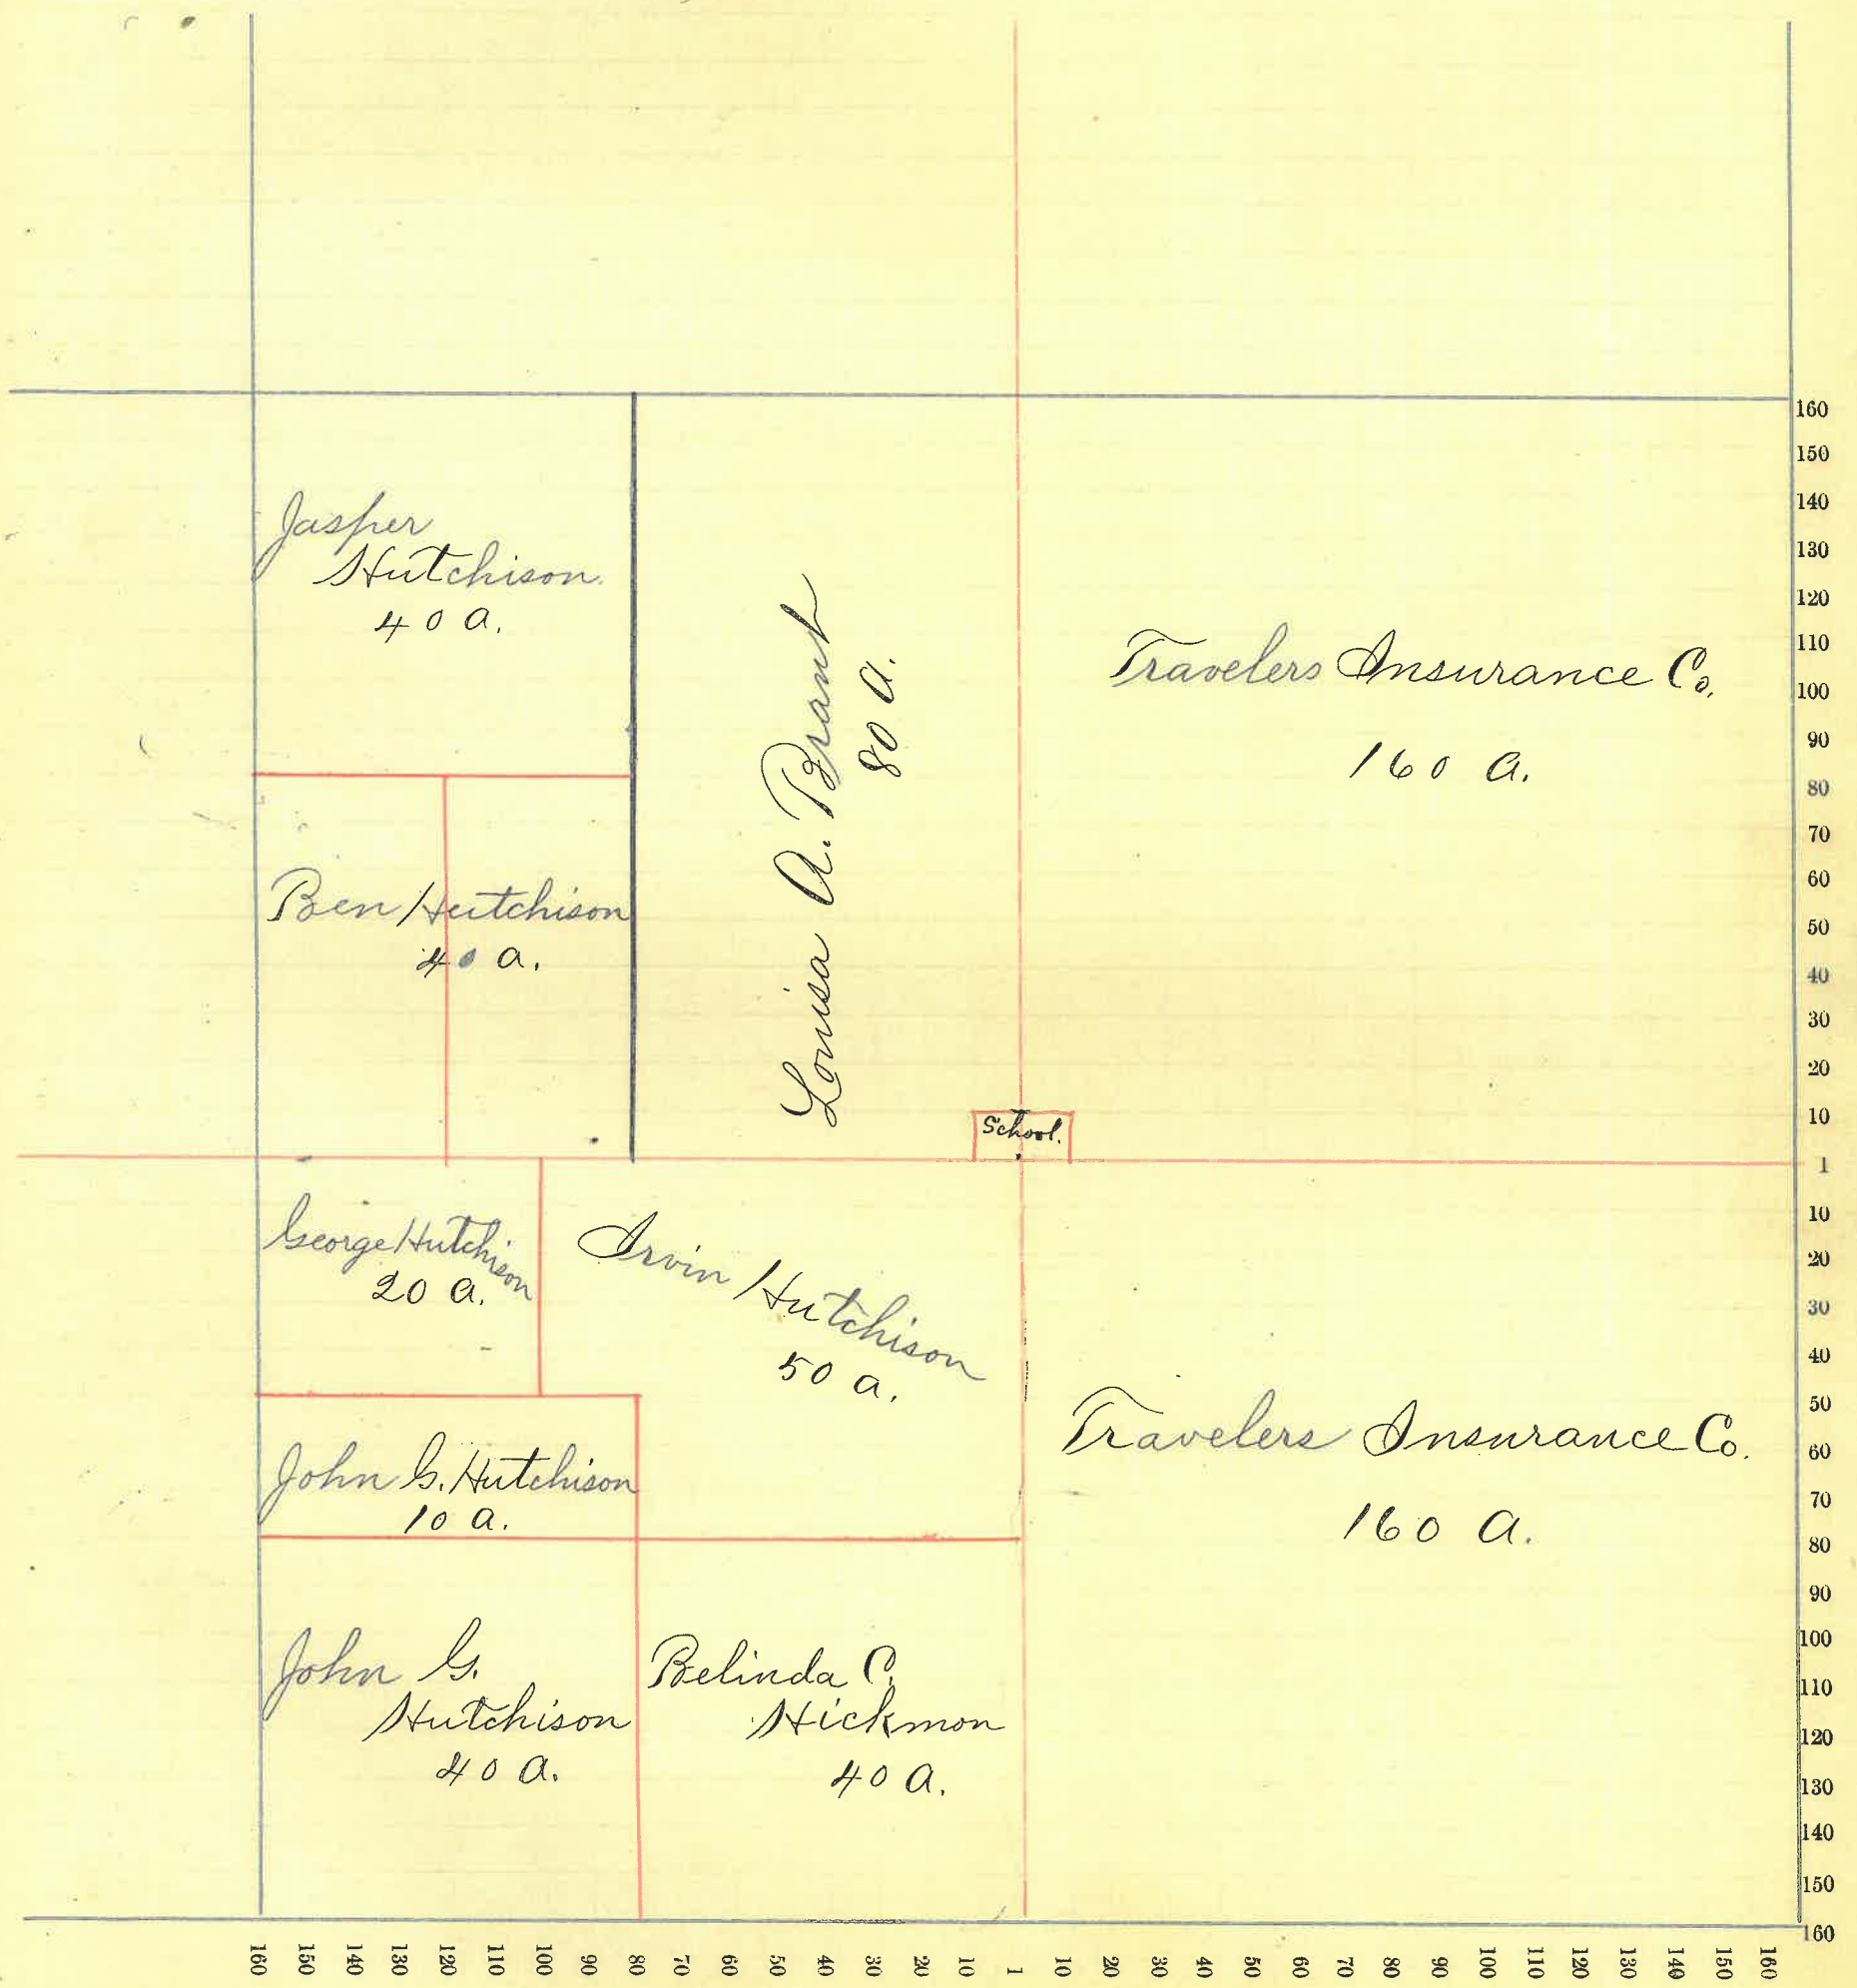 Jasper
Hutchison.
40 a.
Louisa A. Brant
80 a.
Travelers Insurance Co.
160 a.
Ben Hutchison
40 a.
School.
George Hutchison
20 a.
Irvin Hutchison
50 a.
John G. Hutchison
10 a.
Travelers Insurance Co.
160 a.
John G.
Hutchison
40 a.
Belinda C.
Hickmon
40 a.
160
150
140
130
120
110
100
90
80
70
60
50
40
30
20
10
1
10
20
30
40
50
60
70
80
90
100
110
120
130
140
150
160
160 150 140 130 120 110 100 90 80 70 60 50 40 30 20 10 1 10 20 30 40 50 60 70 80 90 100 110 120 130 140 150 160